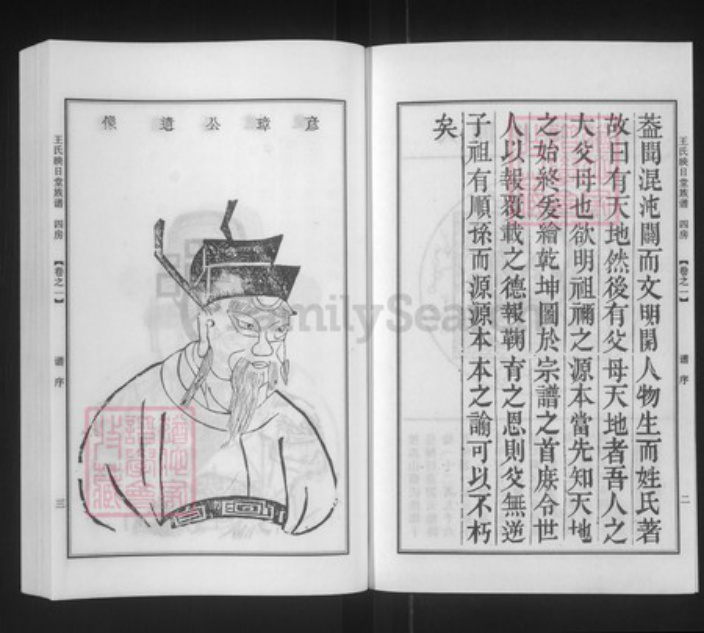 王氏映日堂族谱 四房 【卷之一】 谱序 二
蓋聞混沌闢而文明開人物生而姓氏著
故曰有天地然後有父母天地者吾人之
大父母也欲明祖禰之源本當先知天地
之始終爰繪乾坤圖於宗譜之首庶令世
人以報覆載之德報鞠育之恩則父無逆
子祖有順孫而源源本本之諭可以不朽
矣
彦璋公遺像
王氏映日堂族谱 四房 【卷之一】 谱序 三
FamilySearch